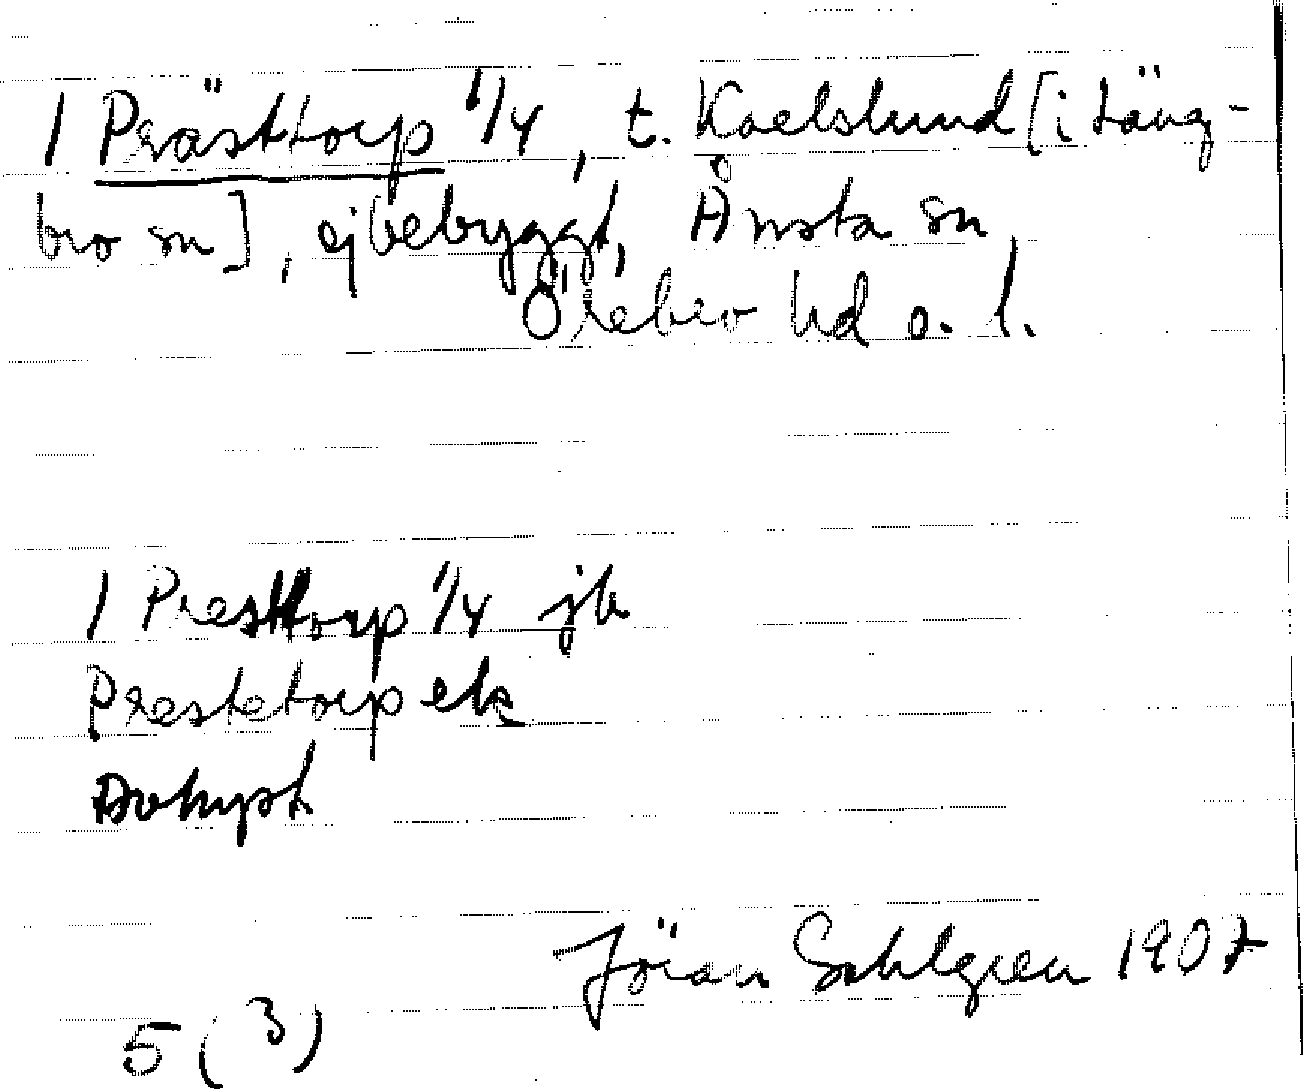 1 Prästtorp 1/4, t. Karlslund [i Läng-
bro sn], ej bebyggt, Ånsta sn
Örebro hd o. l.
1 Presttorp 1/4 jb
Prestetorp ek
Jöran Sahlgren 1907
5 (3)